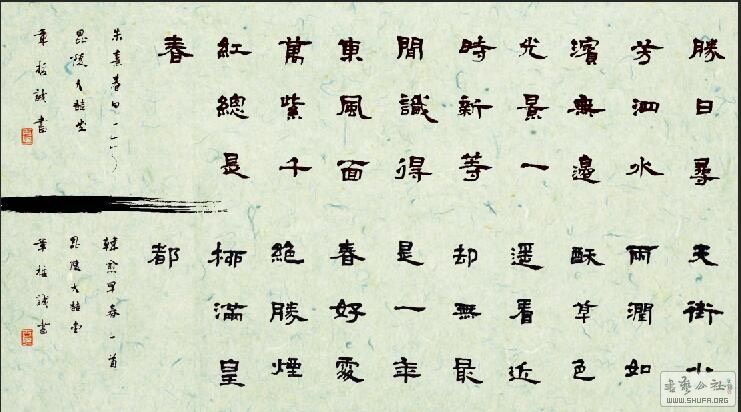 勝日尋
芳泗水
濱無邊
光景一
時新等
閒識得
東風面
萬紫千
紅總是
春
朱熹春日一首
毘陵大堂
書
天街小
雨潤如
酥草色
遥看近
却無最
是一年
春好處
絶勝煙
柳滿皇
都
韓愈早春一首
毘陵大堂
書
书艺公社
WWW.SHUFA.ORG